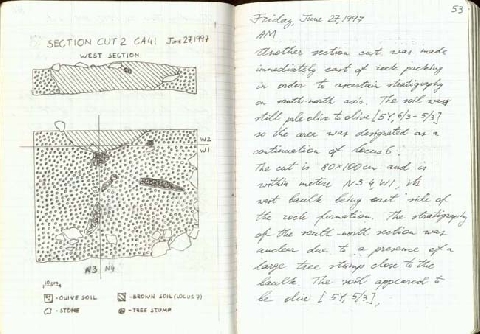 SECTION CUT 2 GA41 June 27, 1997
WEST SECTION
W2
W1
N3 N4
10 cm
- OLIVE SOIL
- BROWN SOIL (LOCUS 7)
- STONE
- TREE STUMP
53
Friday, June 27, 1997
AM
Another section cut was made
immediately east of rock packing
in order to ascertain stratigraphy
on south-north axis. The soil was
still pale olive to olive [5Y, 6/3 - 5/3]
so the area was designated as a
continuation of locus 6.
The cut is 80x100 cm and is
within meters N3-4, W1, its
west baulk being east side of
the rock formation. The stratigraphy
of the south-north section was
unclear due to a presence of a
large tree stump close to the
baulk. The soil appeared to
be olive [5Y, 5/3].